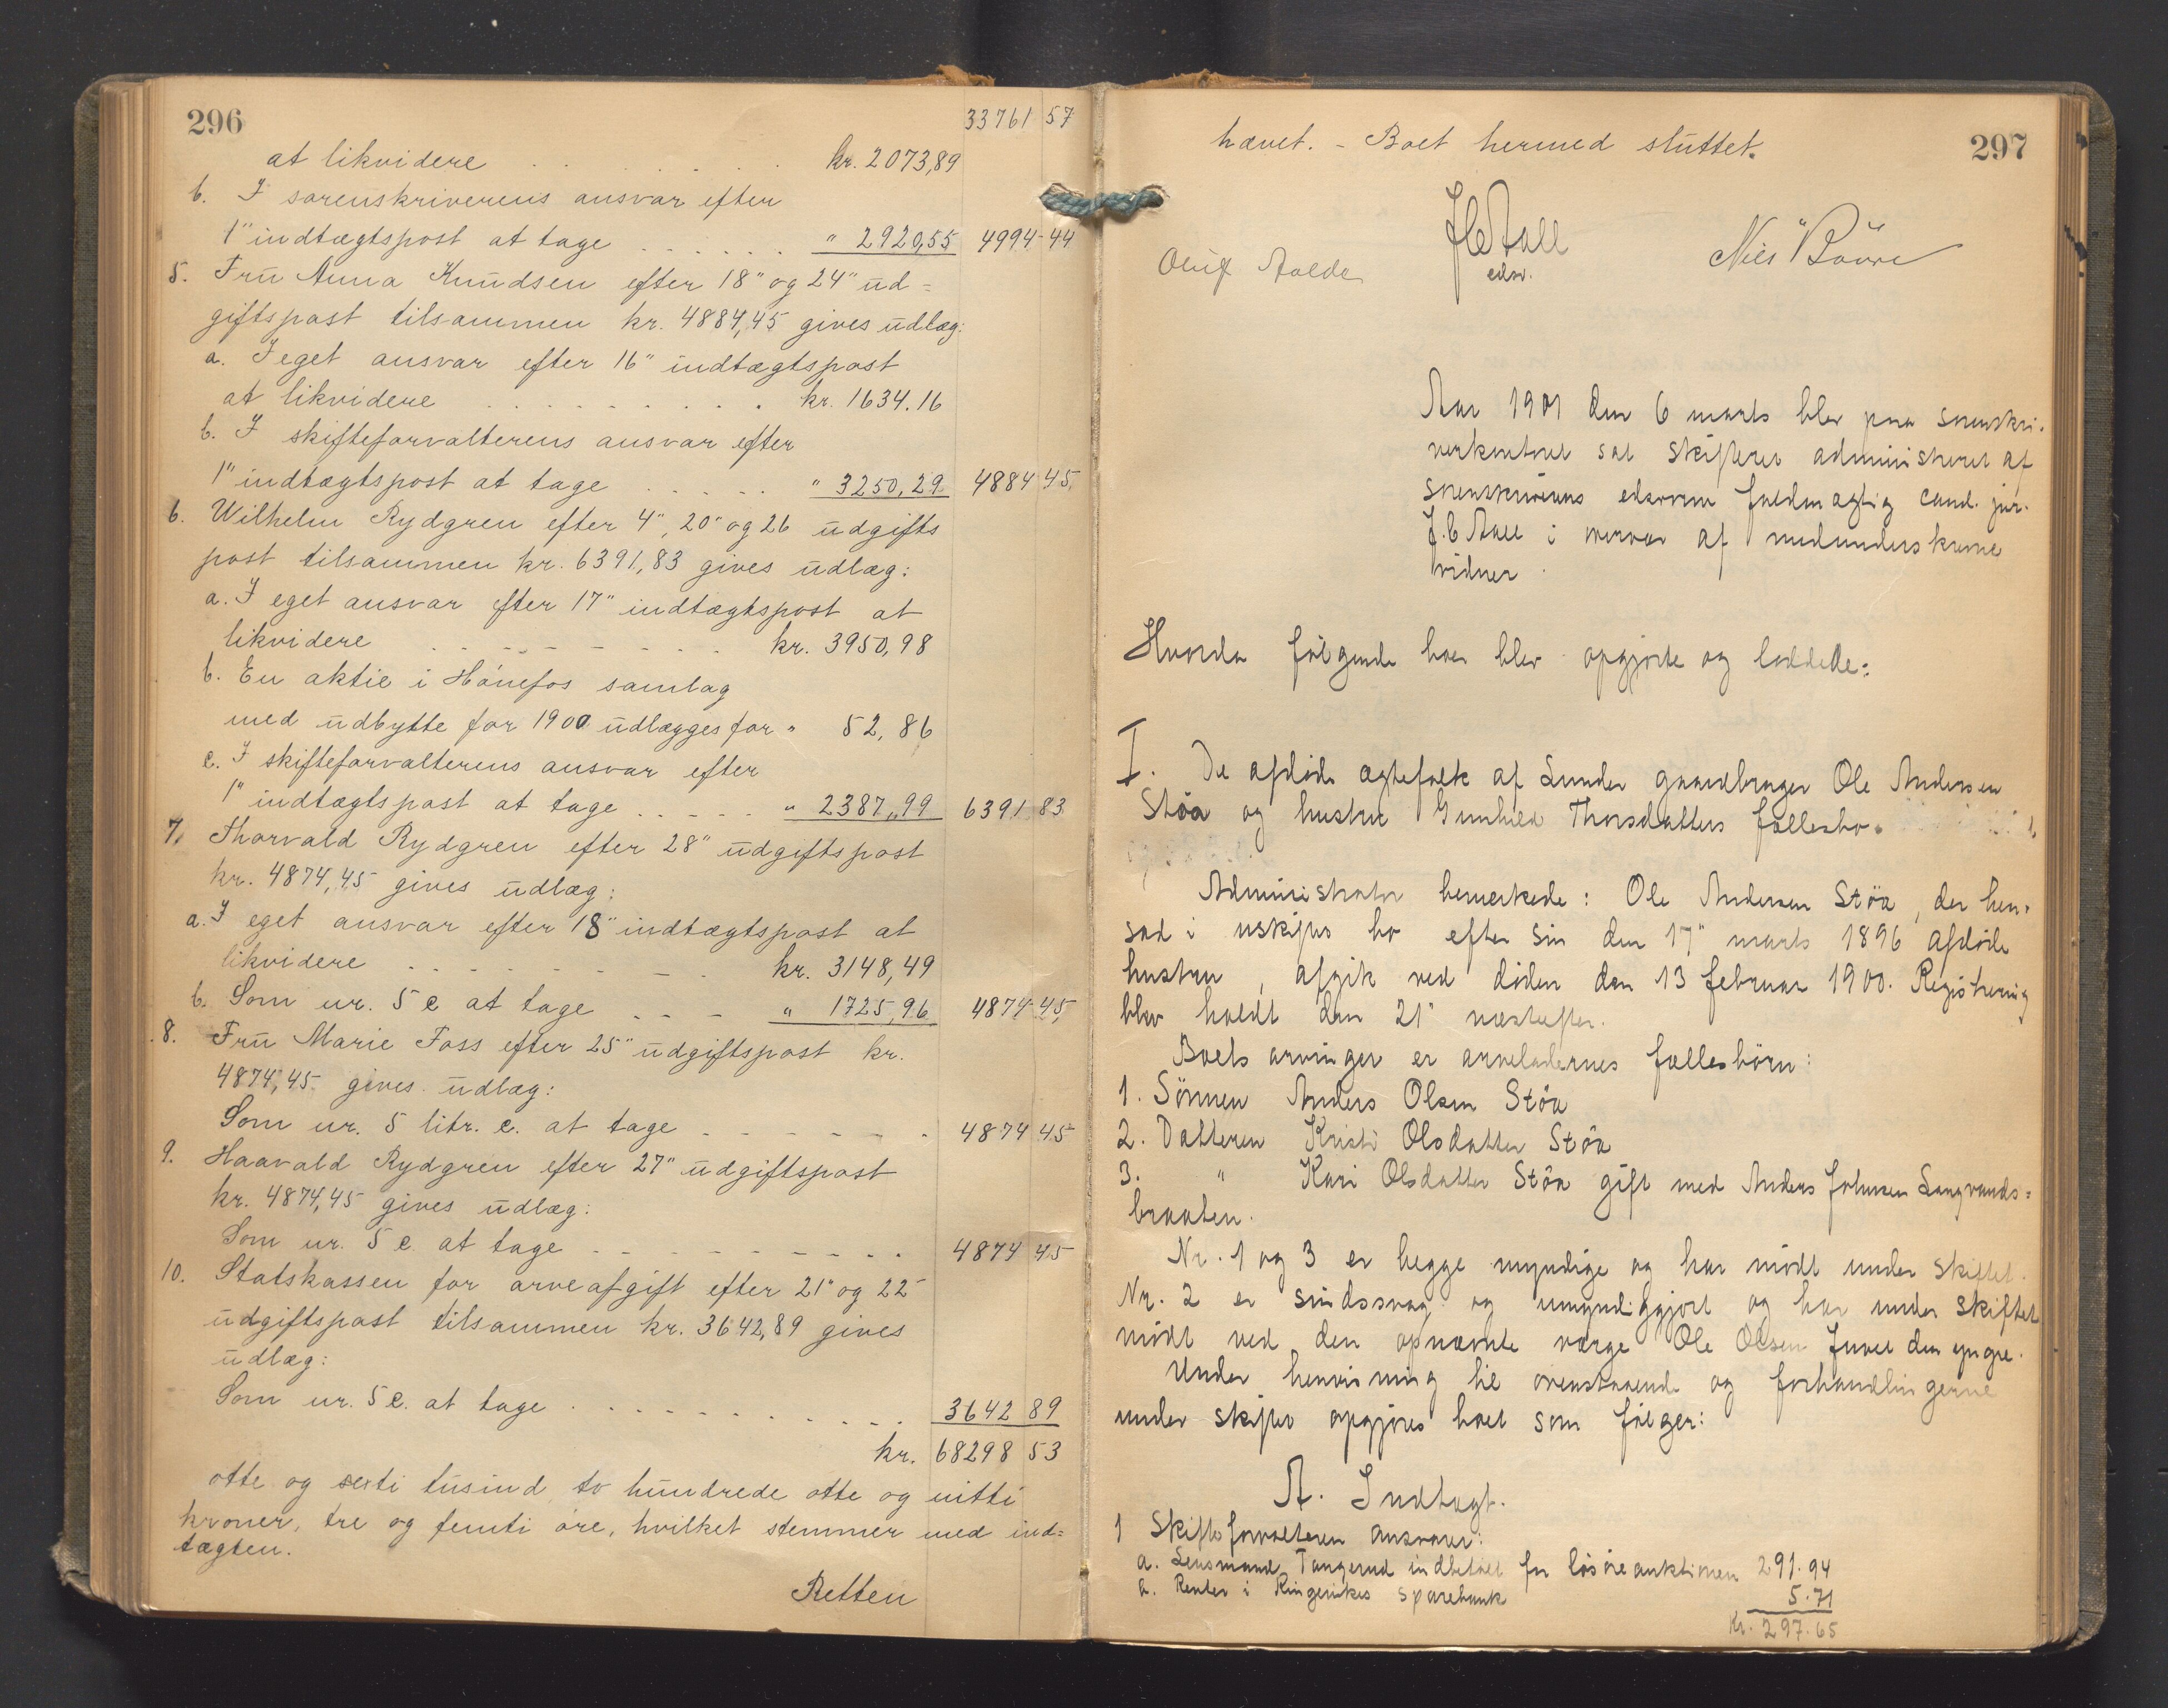 296
33761 57
at likvidere . . . . . kr. 2073,89
b. I sorenskriverens ansvar efter
1" indtægtspost at tage . . . . . " 2920,55 4994 44
5. Fru Anna Knudsen efter 18" og 24" ud=
giftspost tilsammen kr. 4884,45 gives udlæg:
a. I eget ansvar efter 16" indtægtspost
at likvidere . . . . . . . . . kr. 1634.16
b. I skifteforvalterens ansvar efter
1" indtægtspost at tage . . . . . " 3250,29 4884 45
6. Wilhelm Rydgren efter 4", 20" og 26 udgifts
post tilsammen kr. 6391,83 gives udlæg:
a. I eget ansvar efter 17" indtægtspost at
likvidere . . . . . . . . kr. 3950,98
b. En aktie i Hönefos samlag
med udbytte for 1900 udlægges for " 52,86
c. I skifteforvalterens ansvar efter
1" indtægtspost at tage . . . . . " 2387,99 6391 83
7. Thorvald Rydgren efter 28" udgiftspost
kr. 4874,45 gives udlæg:
a. I eget ansvar efter 18" indtægtspost at
likvidere . . . . . . . . kr. 3148,49
b. Som nr. 5 c at tage . . . " 1725,96 4874 45
8. Fru Marie Foss efter 25" udgiftspost kr.
4874,45 gives udlæg:
Som nr. 5 litr. c. at tage . . . . . . 4874 45
9. Haavald Rydgren efter 27" udgiftspost
kr. 4874,45 gives udlæg:
Som nr. 5 c at tage . . . . . . . . . 4874 45
10. Statskassen for arveafgift efter 21" og 22"
udgiftspost tilsammen kr. 3642,89 gives
udlæg:
Som nr. 5 c. at tage . . . . . . . . . . 3642 89
kr. 68298 53
otte og sexti tusind, to hundrede otte og nitti
kroner, tre og femti öre, hvilket stemmer med ind=
tægten.
Retten
297
hævet. - Boet hermed sluttet.
J C Aall
edsv.
Oluf Aalde
Nils Bövre
Aar 1901 den 6 marts blev paa sorenskri-
verkontoret sat skifteret administreret af
sorenskriverens edsvorne fuldmægtig cand. jur.
J. C Aall i overvær af medunderskrevne
vidner.
Hvorda følgende boer blev opgjorte og loddede:
I. De afdöde ægtefolk af Lunder gaardbruger Ole Andersen
Støa og hustru Gunhild Thorsdatters fællesbo.
Administrator bemerkede: Ole Andersen Støa, der hen-
sad i uskiftet bo efter sin den 17" marts 1896 afdøde
hustru, afgik ved døden den 13 februar 1900. Registrering
blev holdt den 21" næstefter.
Boets arvinger er arveladernes fællesbörn:
1. Sönnen Anders Olsen Støa
2. Datteren Kristi Olsdatter Støa
3. " Kari Olsdatter Støa gift med Anders Johnsen Langvands=
braaten.
Nr. 1 og 3 er begge myndige og har mödt under skiftet.
Nr. 2 er sindssvag og umyndiggjort og har under skiftet
mödt ved den opnævnte værge Ole Olsen Juvet den yngre.
Under henvisning til ovenstaaende og forhandlingerne
under skiftet opgjöres boet som fölger:
A. Indtægt.
1 Skifteforvalteren ansvarer:
a. Lensmand Tangerud indbetalt for lösöreauktionen 291.94
b. Renter i Ringerikes sparebank 5.71
Kr. 297.65